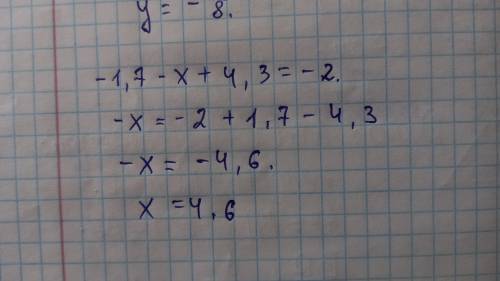 y = - 8.
-1,7 - x + 4,3 = -2.
-x = -2 + 1,7 - 4,3
-x = -4,6.
x = 4,6